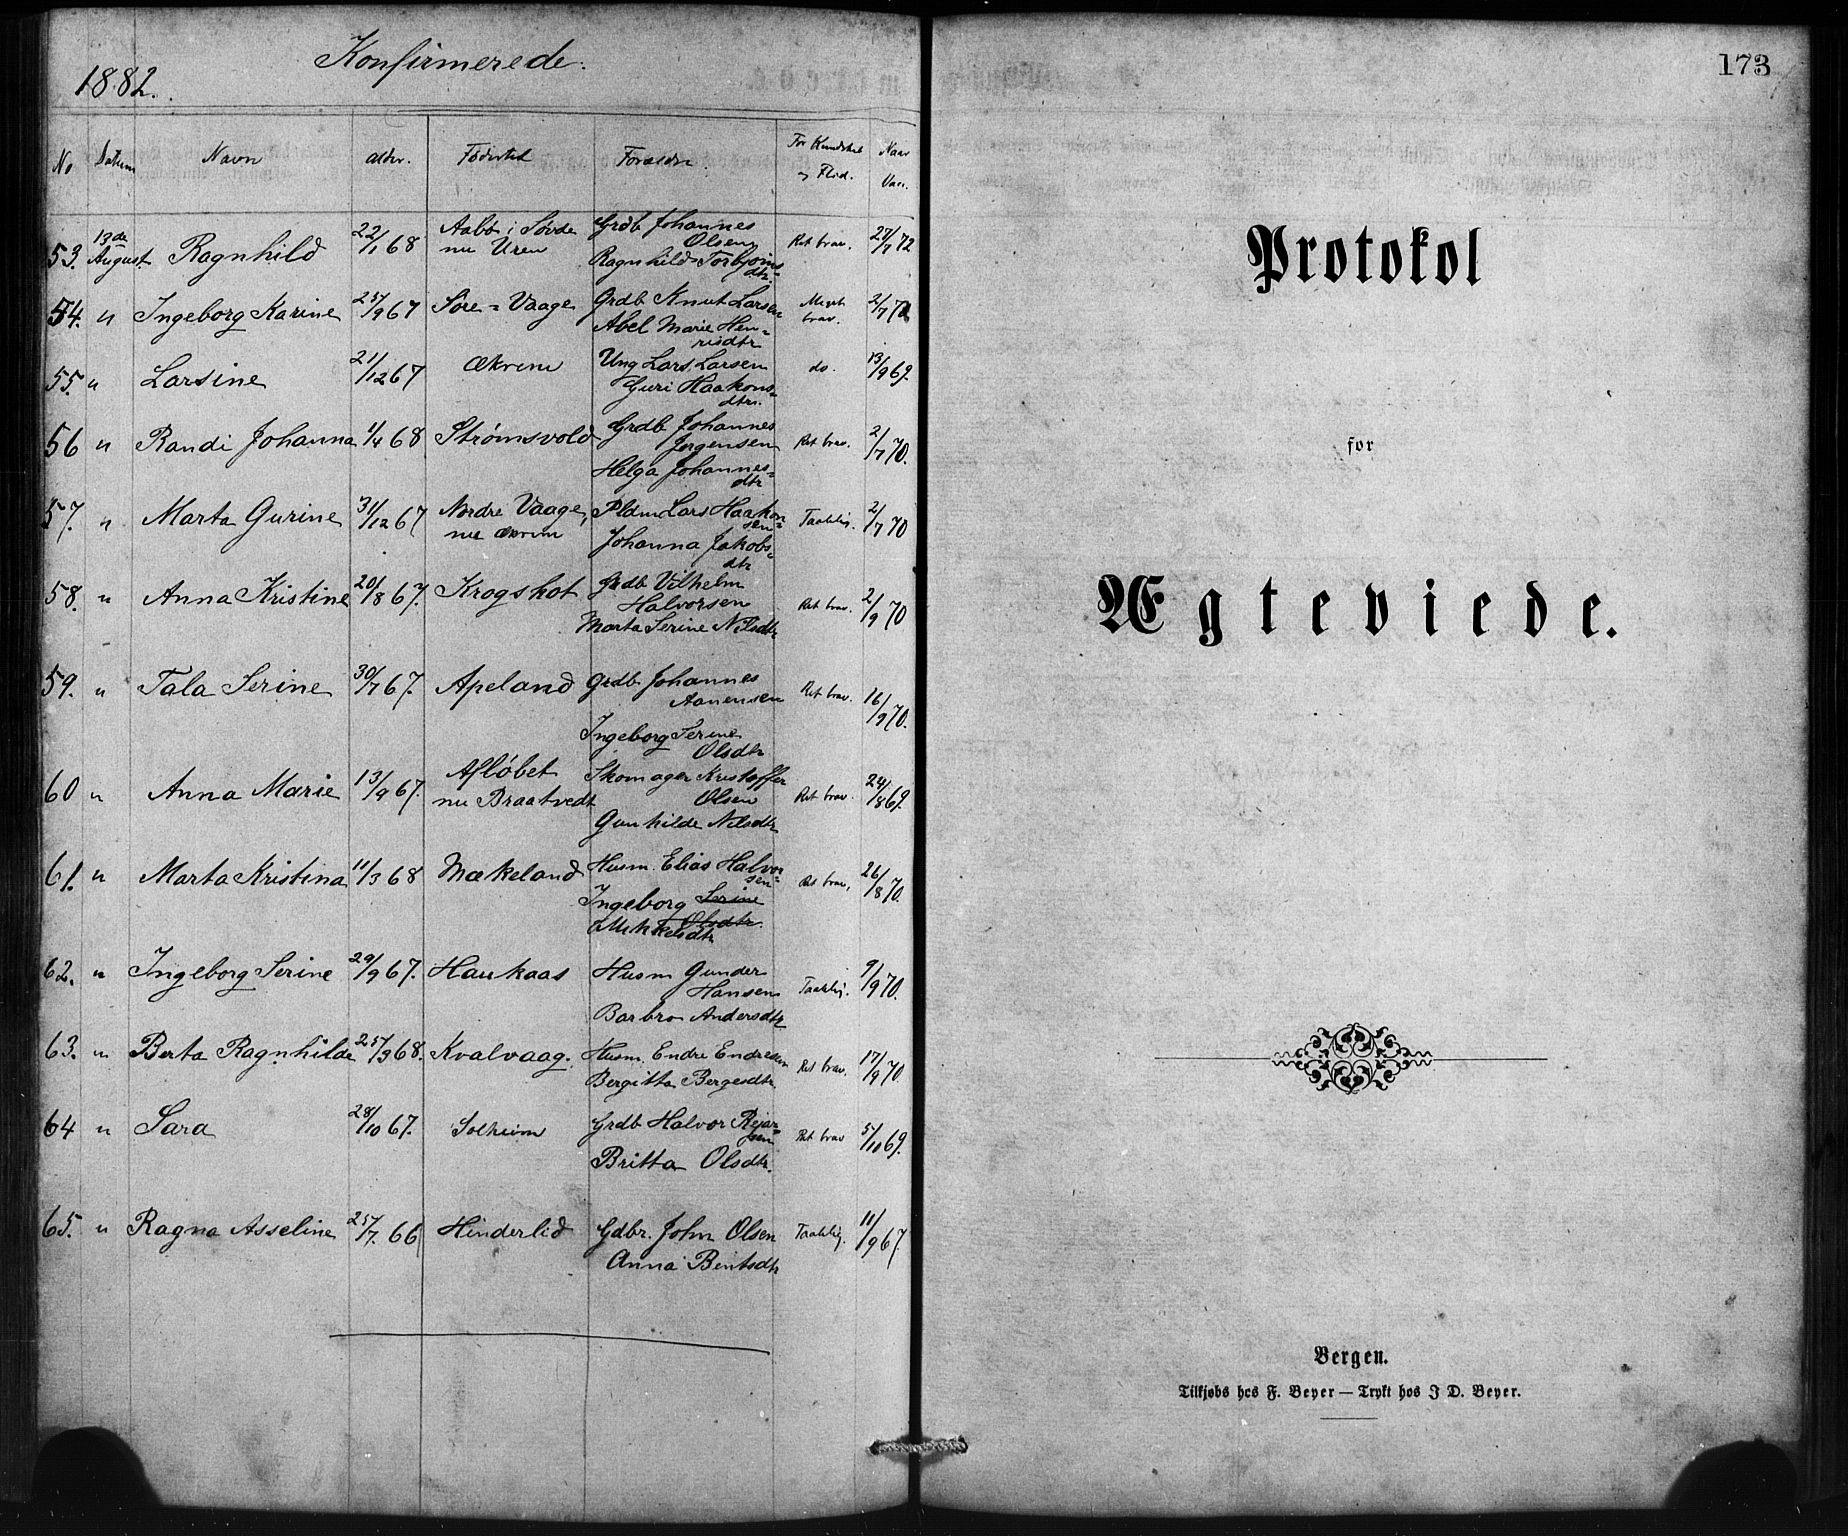 Konfirmerede.
1882.
No Datum Navn alder. Födested Foreldre For Kundskab og Flid. Naar Vacc.
53. 13de August Ragnhild 22/1 68 Aabö i Sövde nu Uren Grdb Johannes Olsen Ragnhild Torbjørnsdtr Ret brav. 27/7 72
54. " Ingeborg Karine 25/9 67 Søre = Vaage Grdb Knut Larsen Abel Marie Henriksdtr Meget brav. 2/7 70
55. " Larsine 21/12 67 Økrene Ung Lars Larsen Guri Haakonsdtr. do. 13/9 69.
56 " Randi Johanna 1/4 68 Strømsvold Grdb Johannes Jørgensen Helga Johannesdtr Ret brav. 2/7 70.
57. " Marta Gurine 31/12 67 Nordre Vaage, nu Økrene Pldm Lars Haakonsen Johanna Jakobsdtr Taalelig. 2/7 70
58. " Anna Kristine 20/8 67. Krogshot Grdb Vilhelm Halvorsen Marta Serine Nilsdtr Ret brav. 2/9 70
59. " Tala Serine 30/7 67. Apeland Grdb Johannes Aanensen Ingeborg Serine Olsdtr Ret brav. 16/9 70.
60 " Anna Marie 13/9 67. Afløbet nu Braatvedt Skomager Kristoffer Olsen Gunhilde Nilsdtr Ret brav. 24/8 69.
61. " Marta Kristina 11/3 68 Mækeland Husm. Elias Halvorsen Ingeborg Serine Olsdtr. Mikkelsdtr Ret brav, 26/8 70.
62. " Ingeborg Serine 29/9 67. Haukaas Husm Gunder Hansen Barbro Andersdtr Taalelig. 9/9 70.
63. " Berta Ragnhilde 25/3 68. Kvalvaag. Husm. Endre Endresen Bergitta Bergesdtr Ret brav. 17/9 70.
64 " Sara 28/10 67. Solheim Grdb Halvor Rejarsen Britta Olsdtr. Ret brav 5/10 69.
65. " Ragna Asseline 25/7. 66 Hinderlid Gdbr. John Olsen Anna Bentsdtr Taalelig. 11/9 67.
173
Protokol
for
Ægteviede.
Bergen.
Tilkjøbs hos F. Beyer — Trykt hos J D. Beyer.